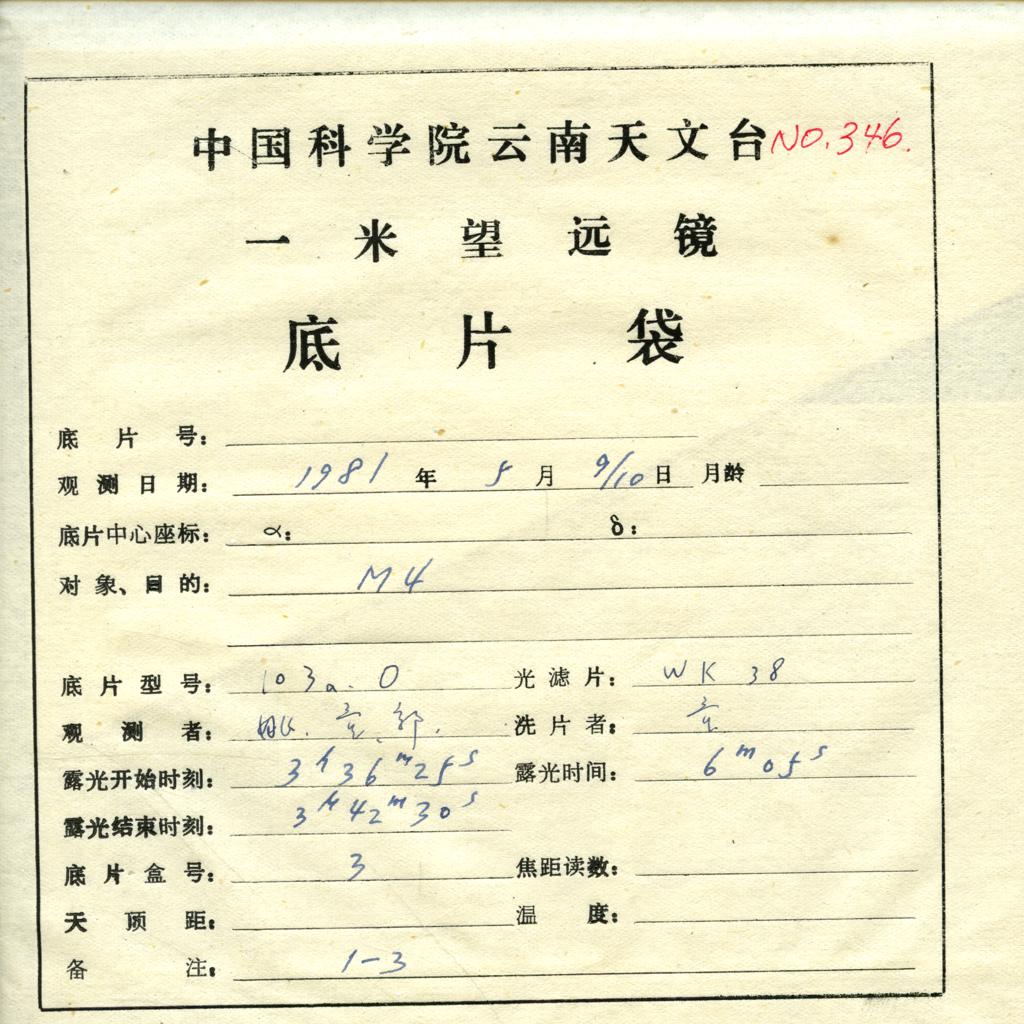 中国科学院云南天文台 NO.346.
一米望远镜
底片袋
底片号：
观测日期： 1981 年 5 月 9/10 日 月龄
底片中心座标： α： δ：
对象、目的： M4
底片型号： 103a.O 光滤片： WK 38
观测者： 洗片者：
露光开始时刻： 3h36m25s 露光时间： 6m05s
露光结束时刻： 3h42m30s
底片盒号： 3 焦距读数：
天顶距： 温度：
备注： 1-3